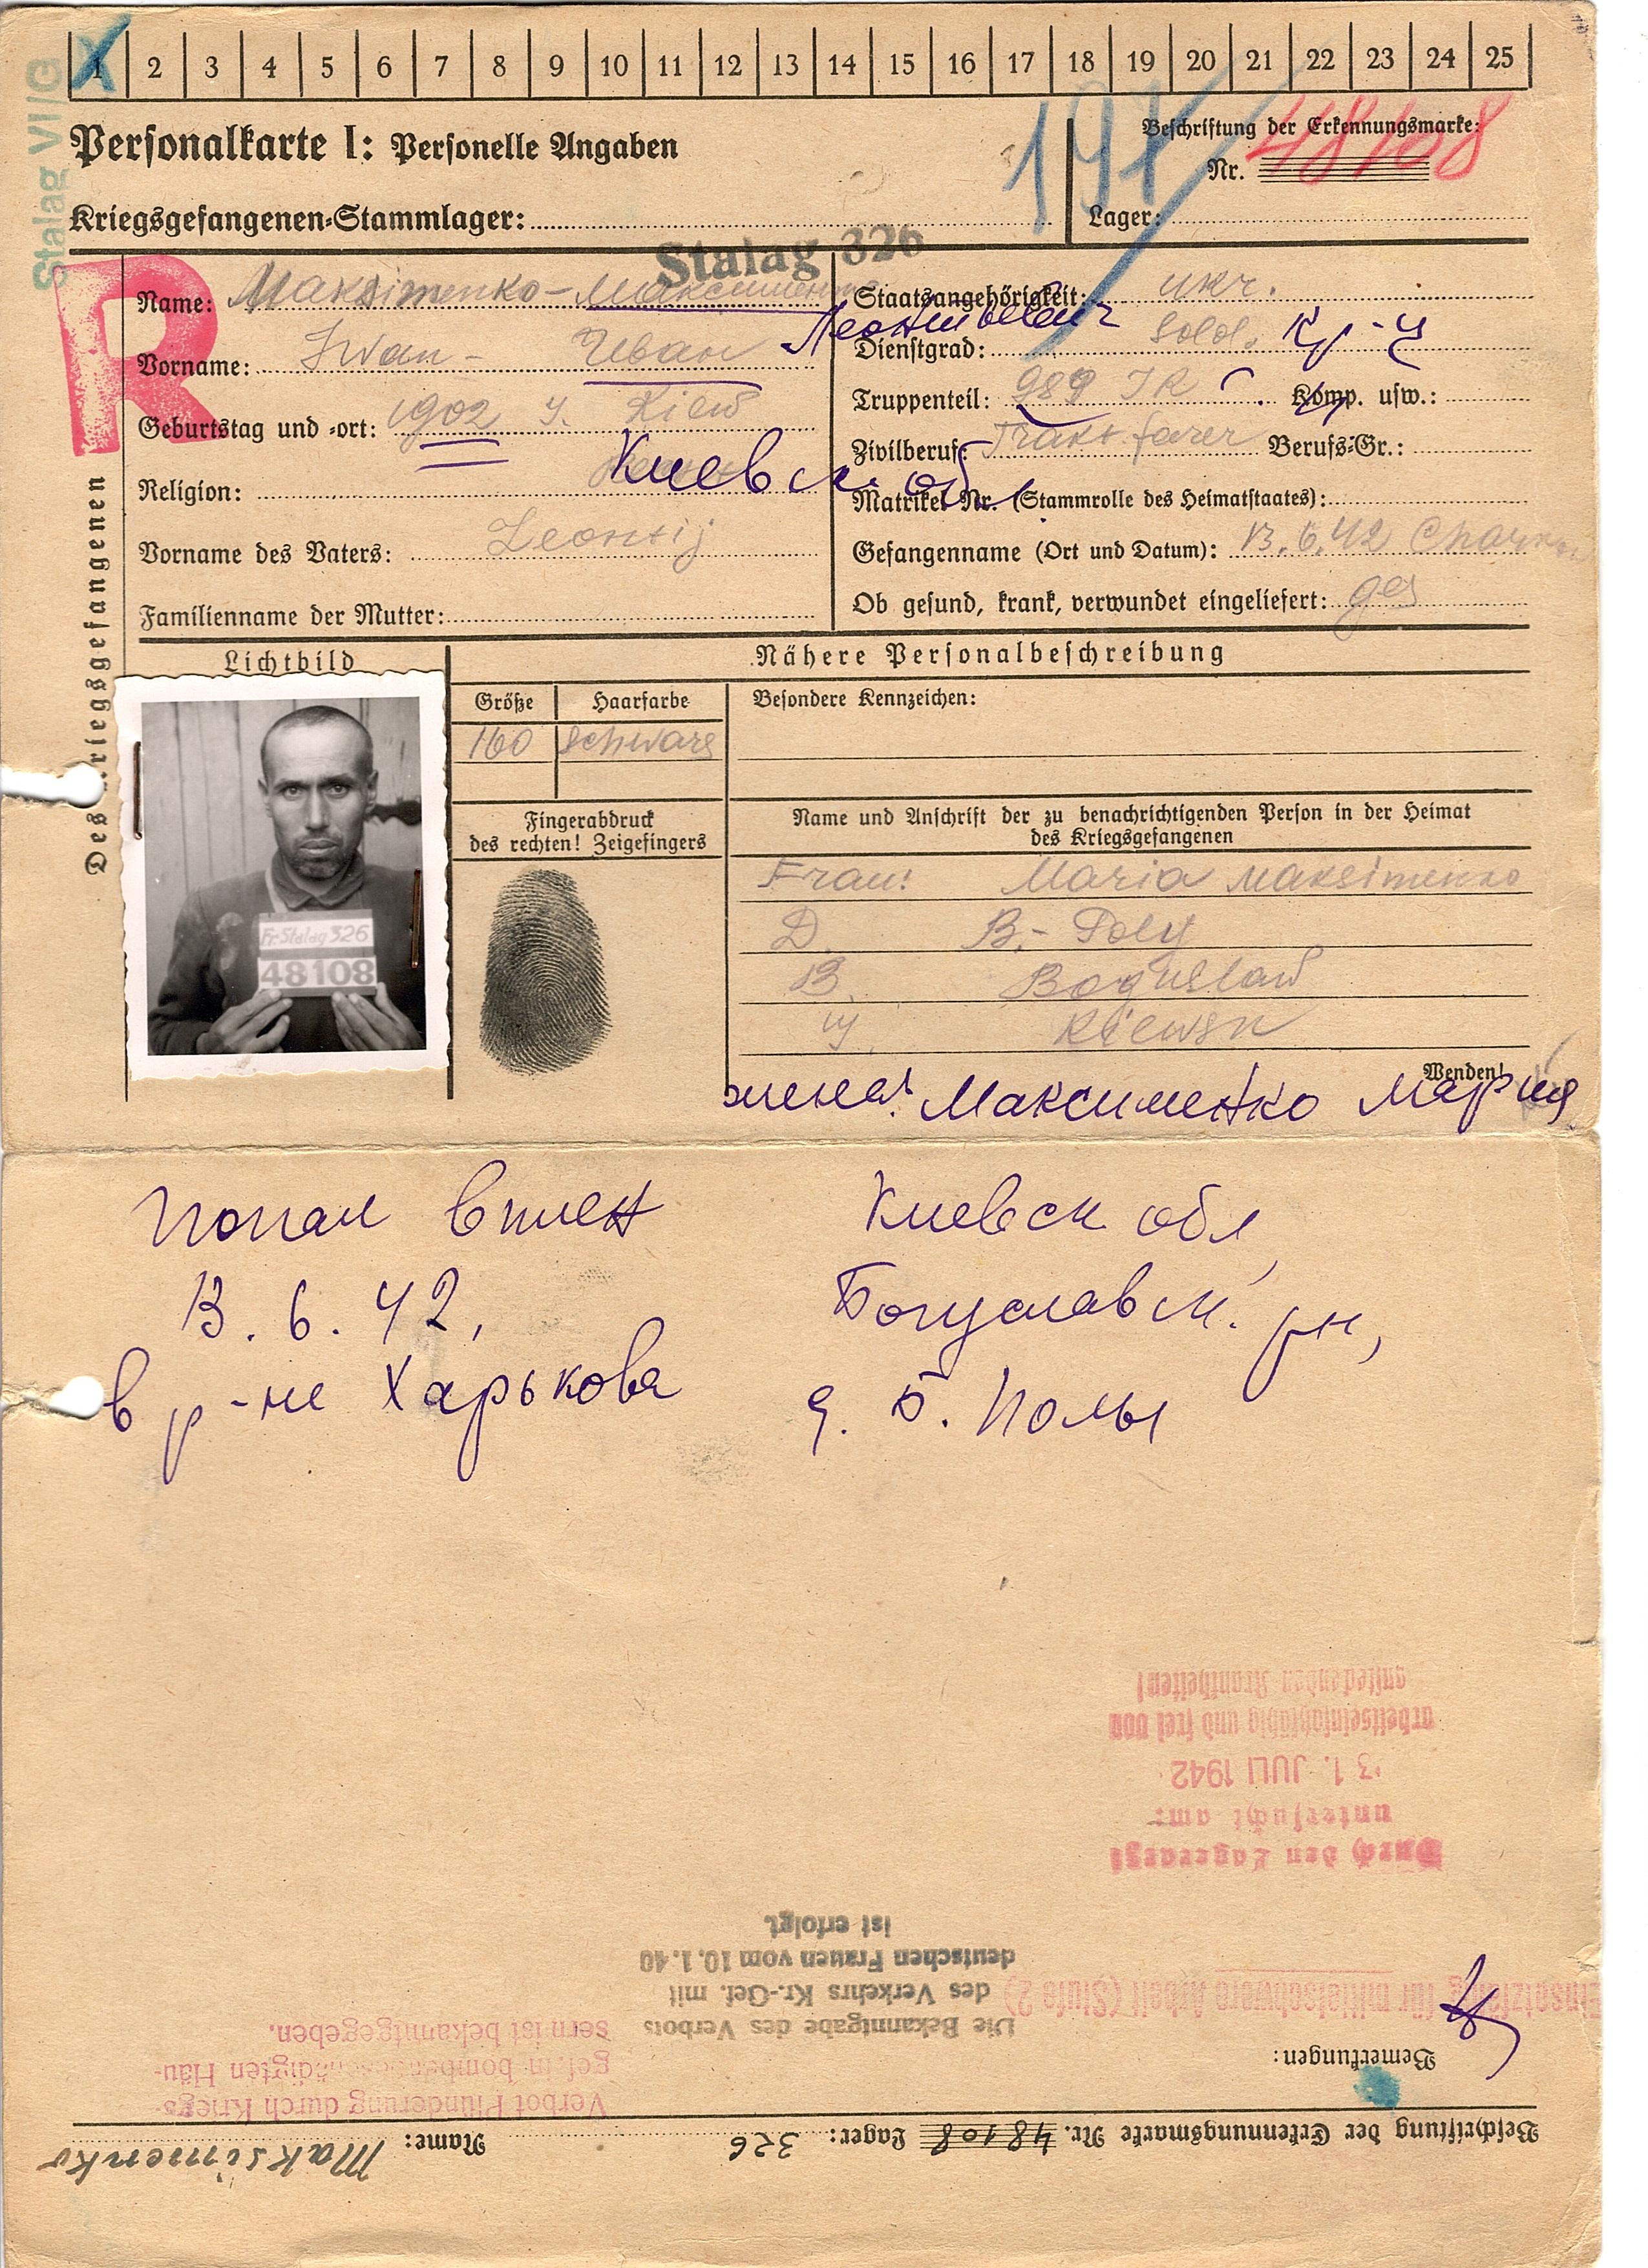 1 2 3 4 5 6 7 8 9 10 11 12 13 14 15 16 17 18 19 20 21 22 23 24 25
Stalag VI/G
Personalkarte I: Personelle Angaben
197
Beschriftung der Erkennungsmarke:
Nr. 48108
Kriegsgefangenen-Stammlager: Stalag 326
Lager:
R
Des Kriegsgefangenen
Name: Maksimenko - Максименко
Vorname: Iwan - Иван Леонтьевич
Geburtstag und -ort: 1902 J. Kiew
Киевск. об.
Religion:
Vorname des Vaters: Leontij
Familienname der Mutter:
Staatsangehörigkeit: ukr.
Dienstgrad: Sold. Кр-ц
Truppenteil: 989 IR Komp. usw.:
Zivilberuf: Berufs-Gr.:
Matrikel Nr. (Stammrolle des Heimatstaates):
Gefangennahme (Ort und Datum): 13.6.42 Charkow
Ob gesund, krank, verwundet eingeliefert: ges
Lichtbild
Fr. Stalag 326
48108
Nähere Personalbeschreibung
Größe Haarfarbe Besondere Kennzeichen:
160 schwarz
Fingerabdruck
des rechten! Zeigefingers
Name und Anschrift der zu benachrichtigenden Person in der Heimat
des Kriegsgefangenen
Frau: Maria Maksimenko
D. B.- Poly
B. Boguslaw
Kiewsk
Wenden!
жена: Максименко Мария
Попал в плен
13.6.42,
в р-не Харькова
Киевск обл,
Богуславск. рн,
д. Б. Полы
Beschriftung der Erkennungsmarke Nr. 48108 Lager: 326 Name: Maksimenko
Bemerkungen:
Einsatzfähig für mittelschwere Arbeit (Stufe 2)
Verbot Plünderung durch Kriegs-
gef. in bombenbeschädigten Häu-
sern ist bekanntgegeben.
Die Bekanntgabe des Verbots
des Verkehrs Kr.-Gef. mit
deutschen Frauen vom 10.1.40
ist erfolgt.
Durch den Lagerarzt
untersucht am:
31. JULI 1942
arbeitseinsatzfähig und frei von
ansteckenden Krankheiten!